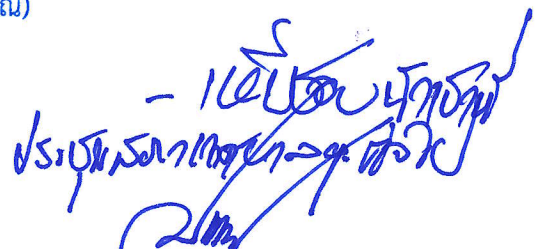 ณ)
- เห็นชอบ นำเข้า
ประชุมสภาเทศบาลฯ ต่อไป